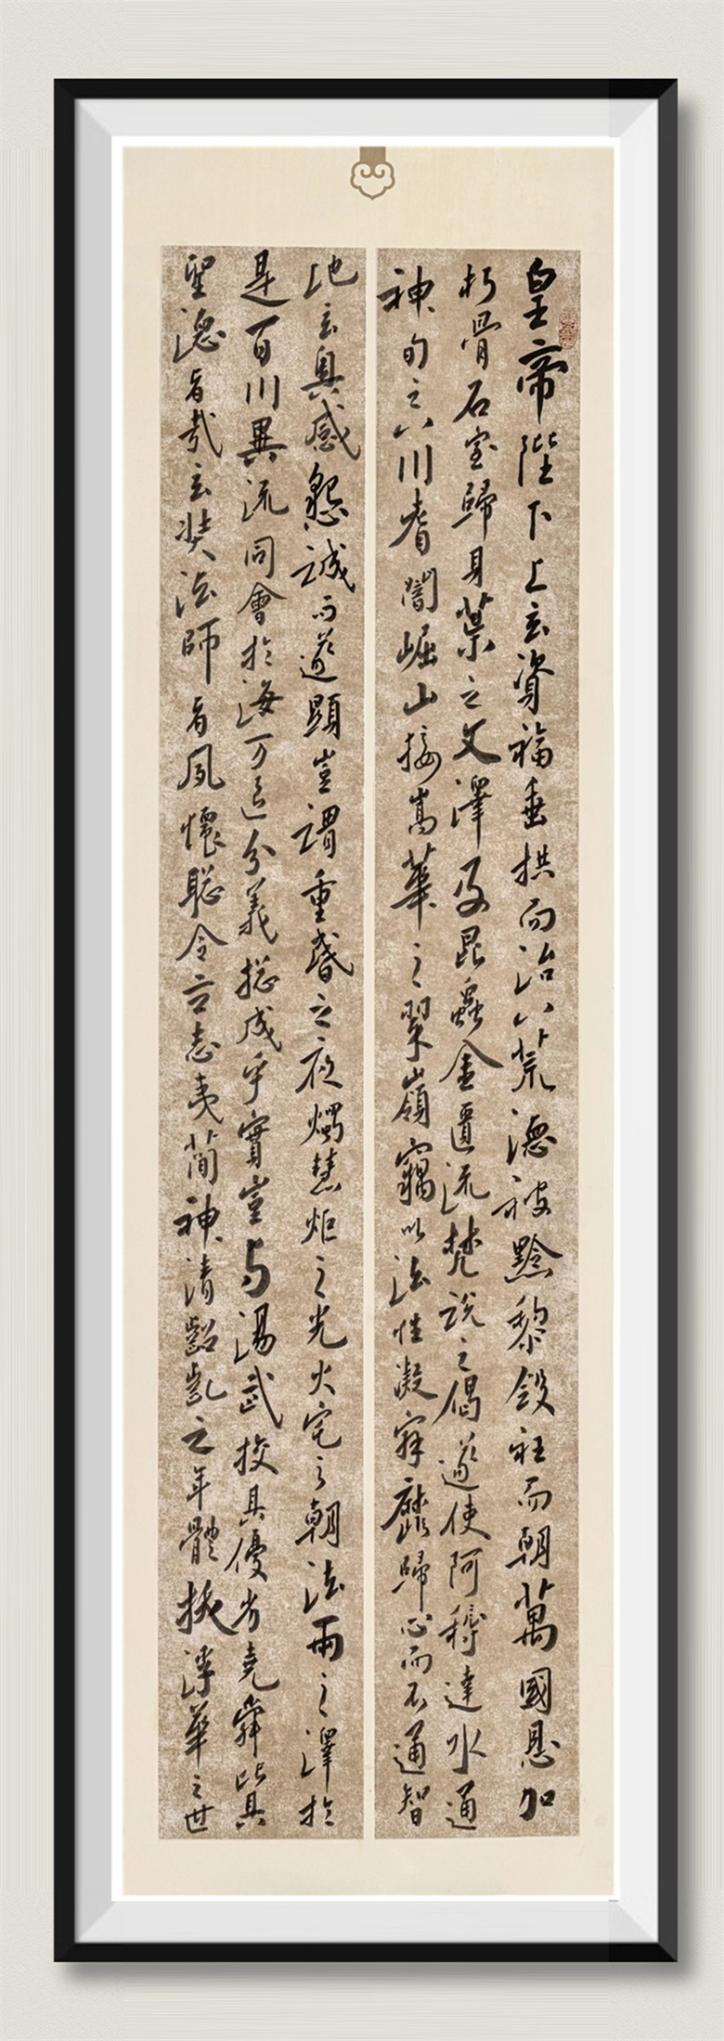 皇帝陛下上玄資福垂拱而治八荒德被黔黎斂衽而朝萬國恩加
朽骨石室歸貝葉之文澤及昆蟲金匱流梵說之偈遂使阿耨達水通
神甸之八川耆闍崛山接嵩華之翠嶺竊以法性凝寂靡歸心而不通智
地玄奧感懇誠而遂顯豈謂重昏之夜燭慧炬之光火宅之朝法雨之澤於
是百川異流同會於海万區分義摠成乎實豈与湯武挍其優劣堯舜比其
聖德者哉玄奘法師者夙懷聡令立志夷簡神清齠齔之年體拔浮華之世